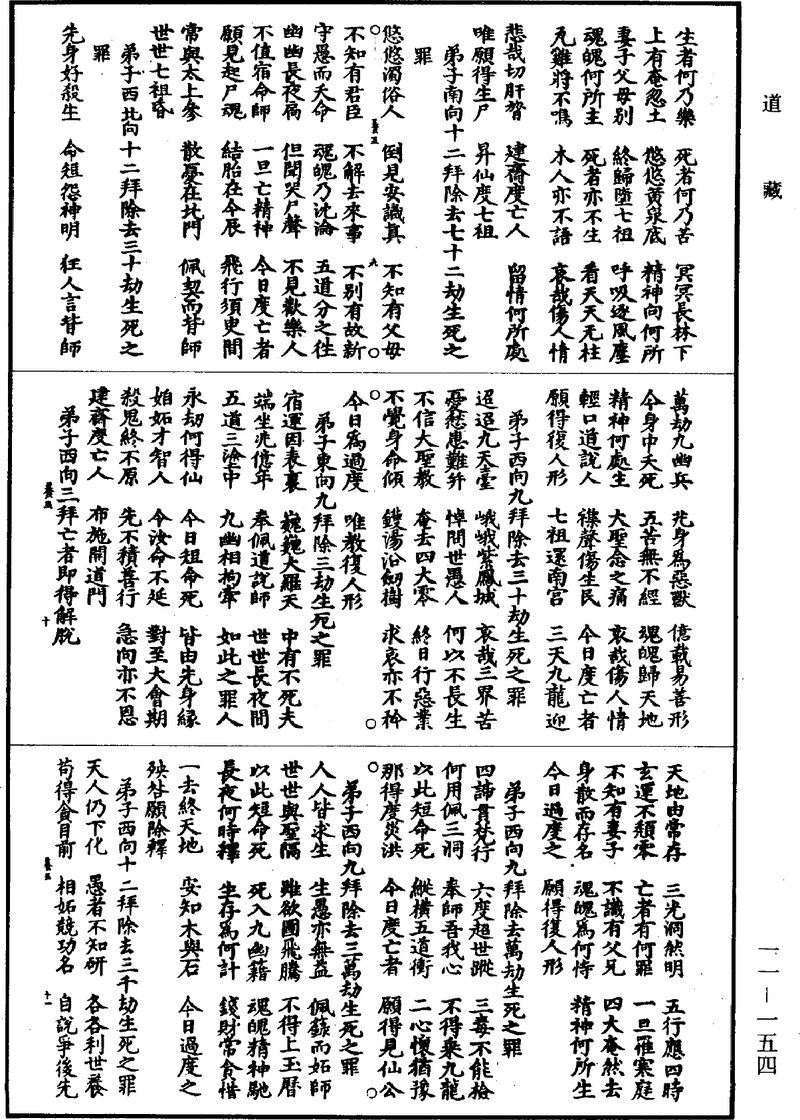 道藏
生者何乃樂　死者何乃苦　冥冥長林下
上有奄忽土　悠悠黃泉底　精神向何所
妻子父母別　終歸墮七祖　呼吸逐風塵
魂魄何所主　死者亦不生　看天天无柱
瓦雞將不鳴　木人亦不語　哀哉傷人情
悲哉切肝胷　建齋度亡人　留情何所處
唯願得生尸　昇仙度七祖
弟子南向十二拜除去七十二劫生死之
罪
悠悠濁俗人　倒見安識真　不知有父母
不知有君臣　不解去來事　不別有故新
守愚而夭命　魂魄乃沈淪　五道分之往
幽幽長夜扃　但聞哭尸聲　不見歡樂人
不值宿命師　一旦亡精神　今日度亡者
願見起尸魂　結胎在今辰　飛行須臾間
常與太上參　散憂在北門　佩契而昔師
世世七祖昏
弟子西北向十二拜除去三十劫生死之
罪
先身好殺生　命短怨神明　狂人言昔師
萬劫九幽兵　先身為惡獸　億載易善形
今身中夭死　五苦無不經　魂魄歸天地
精神何處生　大聖念之痛　哀哉傷人情
輕口道說人　謀聲傷生民　今日度亡者
願得復人形　七祖還南宮　三天九龍迎
弟子西向九拜除去三十劫生死之罪
迢迢九天臺　峨峨紫鳳城　哀哉三界苦
憂愁應難弁　悼問世愚人　何以不長生
不信大聖教　奄去四大零　終日行惡業
不覺身命傾　鑊湯沿劒樹　求哀亦不矜
今日為過度　唯教復人形
弟子東向九拜除三劫生死之罪
宿運因表裏　巍巍大羅天　中有不死夫
端坐兆億年　奉佩道說師　世世長夜間
五道三塗中　九幽相拘牽　如此之罪人
永劫何得仙　今日短命死　皆由先身緣
妬妬才智人　令汝命不延　對至大會期
殺鬼終不原　先不積善行　急向亦不恩
建齋度亡人　布施開道門
弟子西向三拜亡者即得解脫
天地由常存　三光洞然明　五行應四時
玄運不頹零　亡者有何罪　一旦罹寒庭
不知有妻子　不識有父兄　四大奄然去
身散而存名　魂魄為何恃　精神何所生
今日過度之　願得復人形
弟子西向九拜除去萬劫生死之罪
四諦貫梵行　六度超世蹤　三毒不能捡
何用佩三洞　奉師吾我心　不得乘九龍
以此短命死　縱橫五道衝　二心懷猶豫
那得度炎洪　今日度亡者　願得見仙公
弟子西向九拜除去三萬劫生死之罪
人人皆求生　生愚亦無益　佩籙而妬師
世世與聖隔　雖欲圖飛騰　不得上玉曆
以此短命死　死入九幽籍　魂魄精神馳
長夜何時釋　生存為何計　錢財常貪惜
一去終天地　安知木與石　今日過度之
殃咎願除釋
弟子西向十二拜除去三千劫生死之罪
天人仍下化　愚者不知研　各各利世養
苟得貪目前　相妬競功名　自說爭後先
一一－一五四